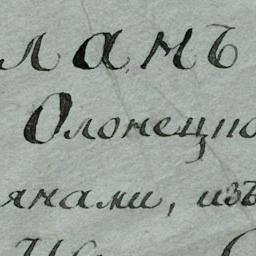 ламъ
Олонецко
янами, изъ